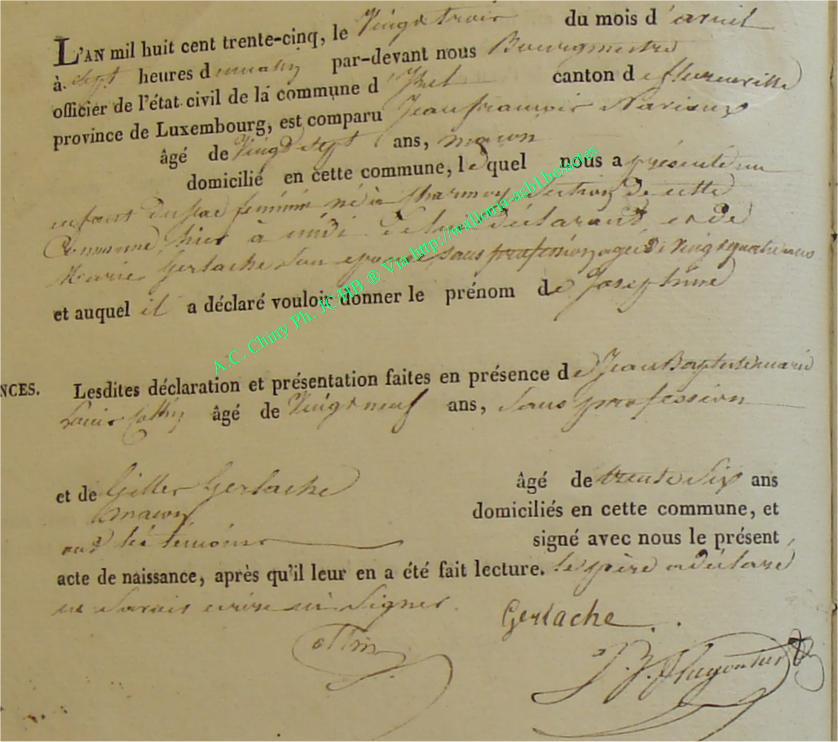 L'AN mil huit cent trente-cinq, le Vingt trois du mois d'avril
à sept heures du matin par-devant nous Bourgmestre
officier de l'état civil de la commune d'Izel canton de florenville
province de Luxembourg, est comparu Jean françois
âgé de Vingt sept ans, maçon
domicilié en cette commune, lequel nous a présenté un
enfant du sexe féminin né à section de cette
Commune hier à midi de lui déclarant et de
Marie Gerlache son épouse sans profession agée de vingt quatre ans
et auquel il a déclaré vouloir donner le prénom de Josephine
A.C. Chiny Ph. JCHB ® Via http://wallonia-asbl.be.com
NCES. Lesdites déclaration et présentation faites en présence de Jean Baptiste marie
Louis âgé de Vingt neuf ans, sans profession
et de Gilles Gerlache âgé de trente six ans
maçon domiciliés en cette commune, et
témoins signé avec nous le présent
acte de naissance, après qu'il leur en a été fait lecture. le père a déclaré
ne savoir écrire ni signer.
Gerlache